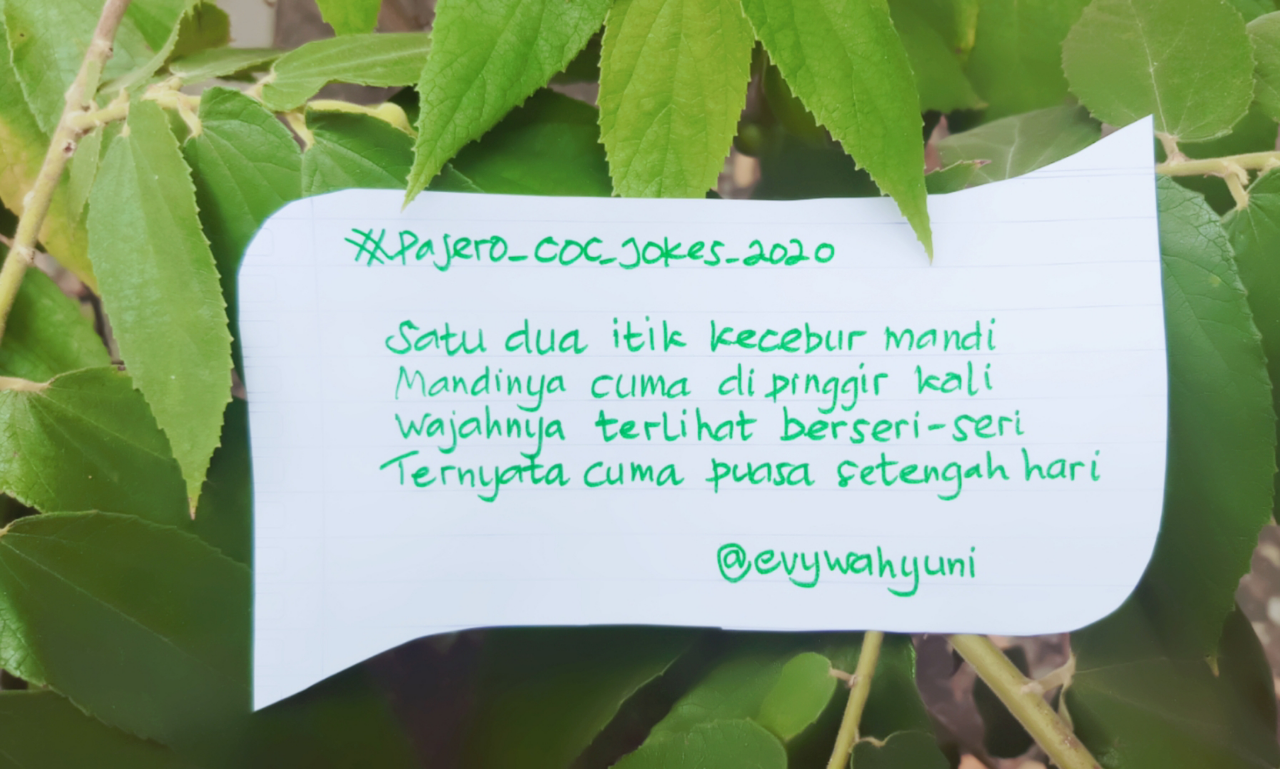 #Pajero_COC_Jokes_2020
Satu dua itik kecebur mandi
Mandinya cuma di pinggir kali
Wajahnya terlihat berseri-seri
Ternyata cuma puasa setengah hari
@evywahyuni